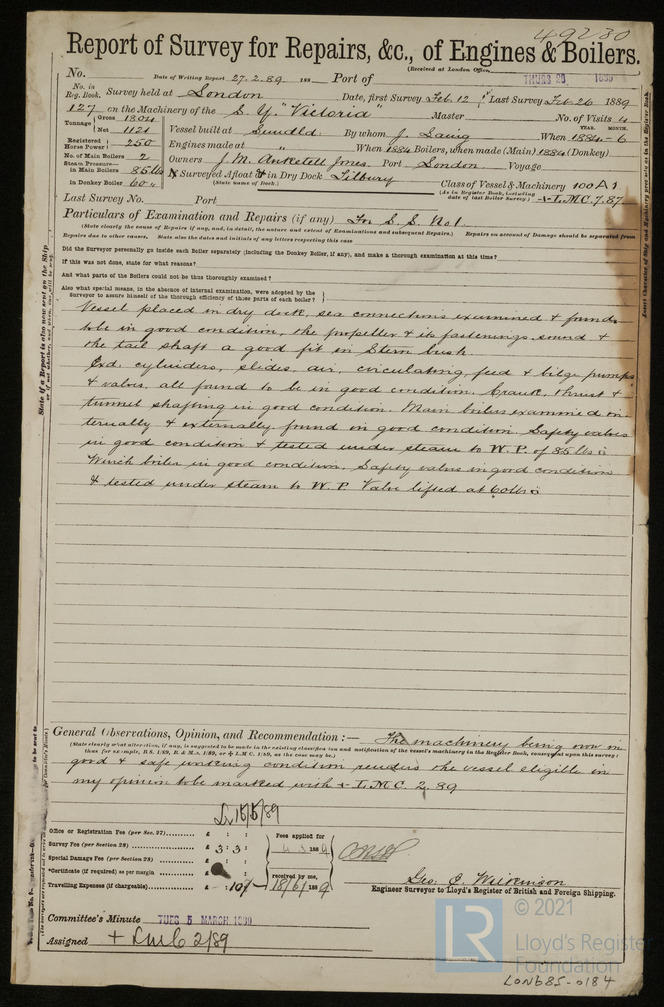 49230
Report of Survey for Repairs, &c., of Engines & Boilers.
(Received at London Office
No. Date of Writing Report 27.2.89 188 Port of THURS 28 1889
No. in Reg. Book. Survey held at London Date, first Survey Feb. 12 Last Survey Feb 26 1889
127 on the Machinery of the S.Y. "Victoria" Master No. of Visits 4
Tonnage Gross 1804 Net 1121 Vessel built at Sundld By whom J. Laing When 1884-6 YEAR. MONTH.
Registered Horse Power 250 Engines made at " " " When 1884 Boilers, when made (Main) 1884 (Donkey)
No. of Main Boilers 2 Owners J. M. Anketell Jones Port London Voyage
Steam Pressure— in Main Boilers 85 lbs Surveyed Afloat & in Dry Dock Tilbury
in Donkey Boiler 60 " (State name of Dock.) Class of Vessel & Machinery 100 A1
(As in Register Book, including date of last Boiler Survey.) + L.M.C. 7.87
Last Survey No. Port
Particulars of Examination and Repairs (if any) For S.S. No 1
(State clearly the cause of Repairs if any, and, in detail, the nature and extent of Examinations and subsequent Repairs.) Repairs on account of Damage should be separated from
Repairs due to other causes. State also the dates and initials of any letters respecting this case
Did the Surveyor personally go inside each Boiler separately (including the Donkey Boiler, if any), and make a thorough examination at this time?
If this was not done, state for what reasons?
And what parts of the Boilers could not be thoroughly examined?
Also what special means, in the absence of internal examination, were adopted by the
Surveyor to assure himself of the thorough efficiency of those parts of each boiler?
Vessel placed in dry dock, sea connections examined & found
to be in good condition, the propeller & its fastenings sound &
the tail shaft a good fit in Stern bush.
Exd. cylinders, slides, air, circulating, feed & bilge pumps
& valves, all found to be in good condition. Crank, thrust &
tunnel shafting in good condition. Main boilers examined in-
ternally & externally found in good condition. Safety valves
in good condition & tested under steam to W.P. of 85 lbs □
Winch boiler in good condition. Safety valves in good condition
& tested under steam to W.P. Valve lifted at 60 lbs □
General Observations, Opinion, and Recommendation :— The machinery being now in
(State clearly what alteration, if any, is suggested to be made in the existing classification and notification of the vessel's machinery in the Register Book, consequent upon this survey:
thus for example, B.S. 1/89, B. & M.S. 1/89, or + L M C. 1/89, as the case may be.)
good & safe working condition renders the vessel eligible in
my opinion to be marked with + L.M.C. 2.89
Office or Registration Fee (per Sec. 27) £ : :
Survey Fee (per Section 28) £ 3 : 3 : Fees applied for 188 9
Special Damage Fee (per Section 28) £ : :
*Certificate (if required) as per margin £ received by me,
Travelling Expenses (if chargeable) £ - 10/- 18/6/188 9
Geo. C. Wilkinson
Engineer Surveyor to Lloyd's Register of British and Foreign Shipping.
Committee's Minute TUES 5 MARCH 1889
Assigned + LMC 2/89
State if a Report is also now sent on the Ship
LR
© 2021
Lloyd's Register
Foundation
LON685-0184